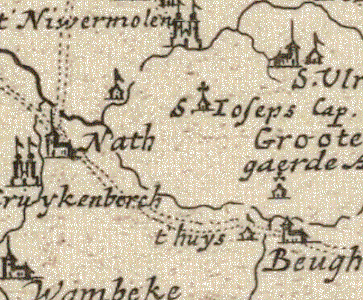 t' Niwermolen
S. Ulr
S. Ioseps Cap.
Groote
gaerde
Nath
ruykenborch
t huys
Beugh
Wambeke